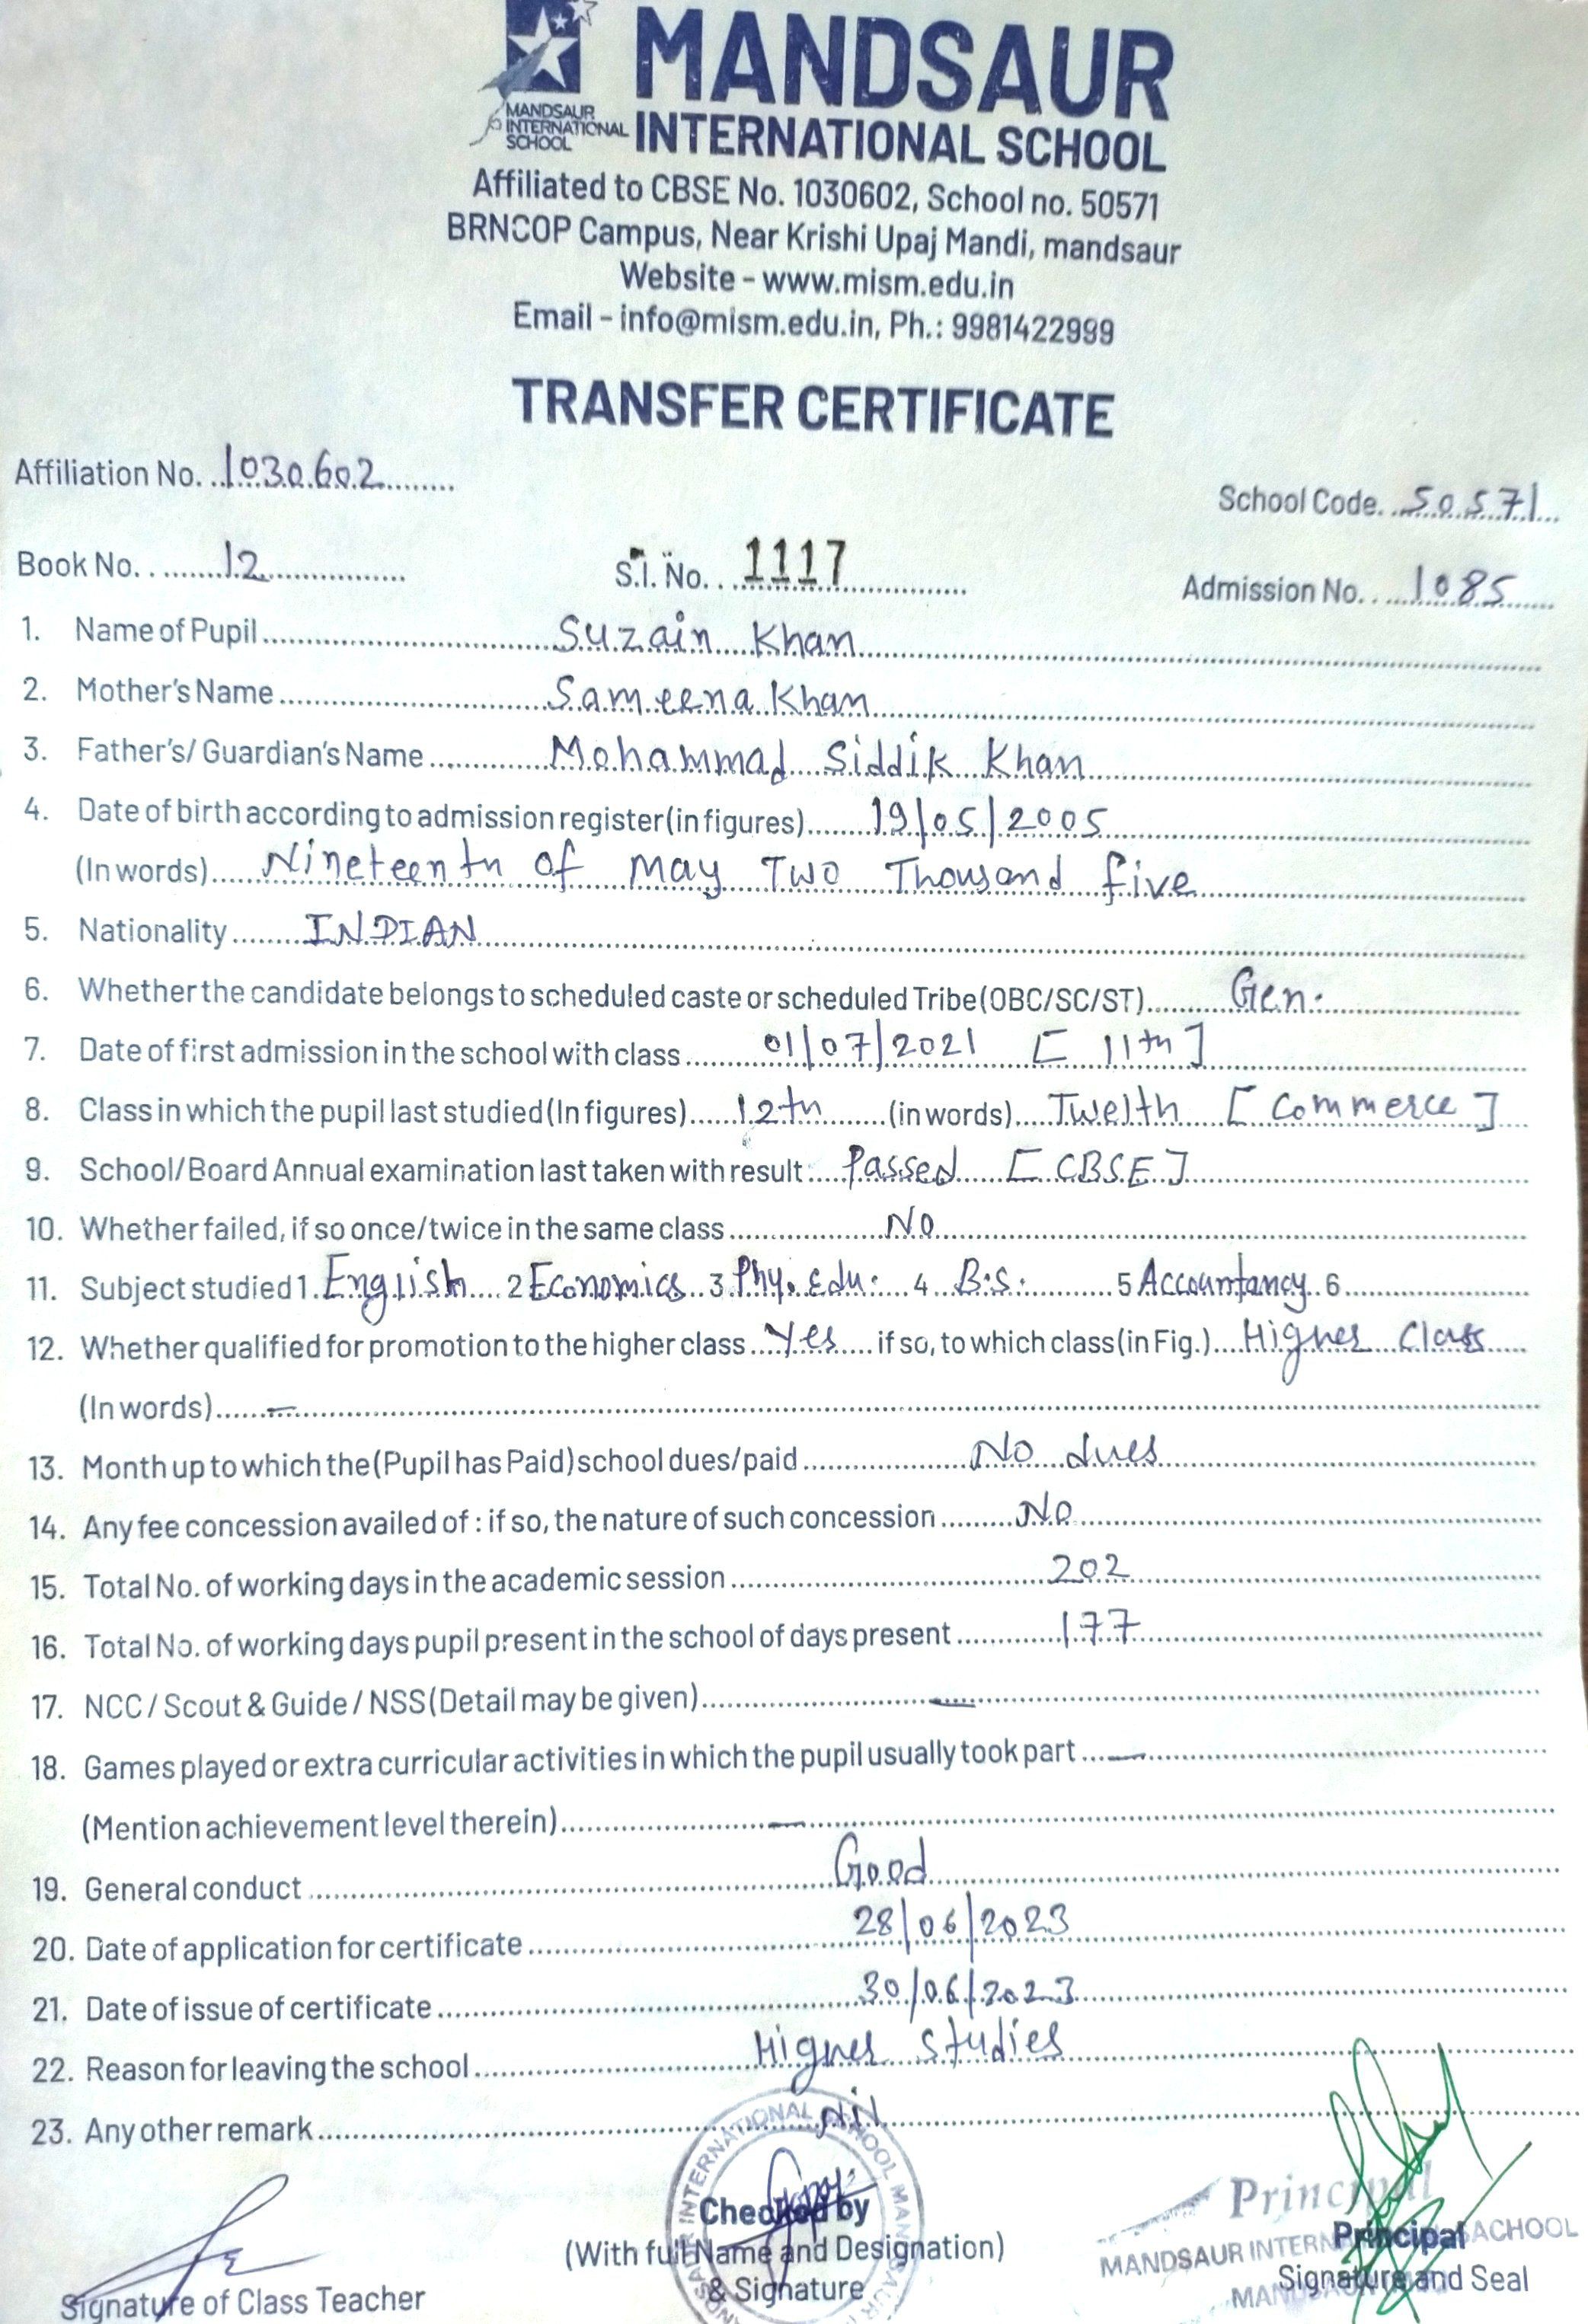 MANDSAUR
INTERNATIONAL SCHOOL
MANDSAUR
INTERNATIONAL
SCHOOL
Affiliated to CBSE No. 1030602, School no. 50571
BRNCOP Campus, Near Krishi Upaj Mandi, mandsaur
Website - www.mism.edu.in
Email - info@mism.edu.in, Ph.: 9981422999
TRANSFER CERTIFICATE
Affiliation No. 1030602
School Code. 50571
Book No. 12 S.I. No. 1117 Admission No. 1085
1. Name of Pupil Suzain Khan
2. Mother's Name Sameena Khan
3. Father's/ Guardian's Name Mohammad Siddik Khan
4. Date of birth according to admission register (in figures) 19/05/2005
(In words) Nineteenth of May Two Thousand five
5. Nationality INDIAN
6. Whether the candidate belongs to scheduled caste or scheduled Tribe (OBC/SC/ST) Gen.
7. Date of first admission in the school with class 01/07/2021 [ 11th ]
8. Class in which the pupil last studied (In figures) 12th (in words) Twelth [ Commerce ]
9. School/Board Annual examination last taken with result: Passed [ CBSE ]
10. Whether failed, if so once/twice in the same class No
11. Subject studied 1. English 2 Economics 3 Phy. Edu. 4 B.S. 5 Accountancy 6
12. Whether qualified for promotion to the higher class Yes if so, to which class (in Fig.) Higher Class
(In words) —
13. Month up to which the (Pupil has Paid) school dues/paid No dues
14. Any fee concession availed of : if so, the nature of such concession No
15. Total No. of working days in the academic session 202
16. Total No. of working days pupil present in the school of days present 177
17. NCC / Scout & Guide / NSS (Detail may be given) —
18. Games played or extra curricular activities in which the pupil usually took part —
(Mention achievement level therein) —
19. General conduct Good
20. Date of application for certificate 28/06/2023
21. Date of issue of certificate 30/06/2023
22. Reason for leaving the school Higher studies
23. Any other remark Nil
Principal
Checked by
Principal
(With full Name and Designation)
MANDSAUR INTERN SACHOOL
Signature of Class Teacher
& Signature
Signature and Seal